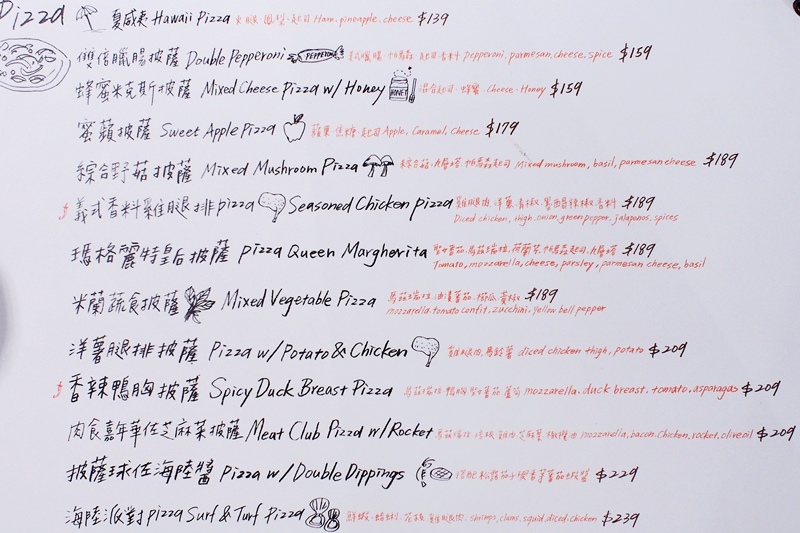 Pizza 夏威夷 Hawaii Pizza 火腿.鳳梨.起司 Ham.pineapple.cheese $139
雙倍臘腸披薩 Double Pepperoni PEPPERONI 臘腸.帕瑪森.起司.香料 pepperoni.parmesan.cheese.spice $159
蜂蜜米克斯披薩 Mixed Cheese Pizza w/ Honey HONEY 混合起司.蜂蜜.Cheese.Honey $159
蜜蘋披薩 Sweet Apple Pizza 蘋果.焦糖.起司 Apple, Caramel, Cheese $179
綜合野菇披薩 Mixed Mushroom Pizza 綜合菇.九層塔.帕瑪森起司 Mixed mushroom, basil, parmesan cheese $189
義式香料雞腿排pizza Seasoned Chicken pizza 雞腿肉.洋蔥.青椒.墨西哥辣椒.香料 $189
Diced chicken, thigh, onion, green pepper, jalapenos, spices
瑪格麗特皇后披薩 pizza Queen Margherita 蕃茄.馬茲瑞拉.荷蘭芹.帕瑪森起司.九層塔 $189
Tomato, mozzarella, cheese, parsley, parmesan cheese, basil
米蘭蔬食披薩 Mixed Vegetable Pizza 馬茲瑞拉.油漬蕃茄.櫛瓜.黃椒 $189
mozzarella.tomato confit, zucchini, yellow bell pepper
洋薯腿排披薩 Pizza w/Potato & Chicken 雞腿肉.馬鈴薯 diced chicken thigh, potato $209
香辣鴨胸披薩 Spicy Duck Breast Pizza 馬茲瑞拉.鴨胸.蕃茄.蘆筍 mozzarella.duck breast.tomato.asparagus $209
肉食嘉年華佐芝麻菜披薩 Meat Club Pizza w/Rocket 馬茲瑞拉.培根.雞肉.芝麻葉.橄欖油 mozzarella, bacon.Chicken, rocket, olive oil $209
披薩球佐海陸醬 Pizza w/ Double Dippings $229
海陸派對pizza Surf & Turf Pizza 鮮蝦.蛤蜊.花枝.雞腿肉.shrimps, clams.squid.diced chicken $239